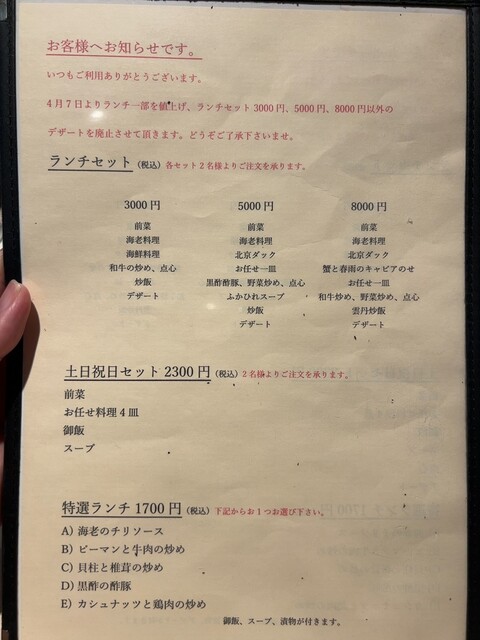 お客様へお知らせです。
いつもご利用ありがとうございます。
4月7日よりランチ一部を値上げ、ランチセット3000円、5000円、8000円以外の
デザートを廃止させて頂きます。どうぞご了承下さいませ。
ランチセット（税込）各セット2名様よりご注文を承ります。
3000円
前菜
海老料理
海鮮料理
和牛の炒め、点心
炒飯
デザート
5000円
前菜
海老料理
北京ダック
お任せ一皿
黒酢酢豚、野菜炒め、点心
ふかひれスープ
炒飯
デザート
8000円
前菜
海老料理
北京ダック
蟹と春雨のキャビアのせ
お任せ一皿
和牛炒め、野菜炒め、点心
雲丹炒飯
デザート
土日祝日セット2300円（税込）2名様よりご注文を承ります。
前菜
お任せ料理4皿
御飯
スープ
特選ランチ1700円（税込）下記からお1つお選び下さい。
A) 海老のチリソース
B) ピーマンと牛肉の炒め
C) 貝柱と椎茸の炒め
D) 黒酢の酢豚
E) カシュナッツと鶏肉の炒め
御飯、スープ、漬物が付きます。